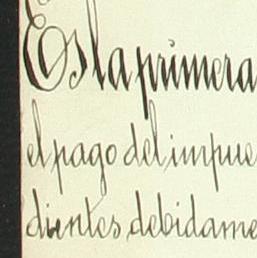 Es la primera
el pago del impue
dientes debidame